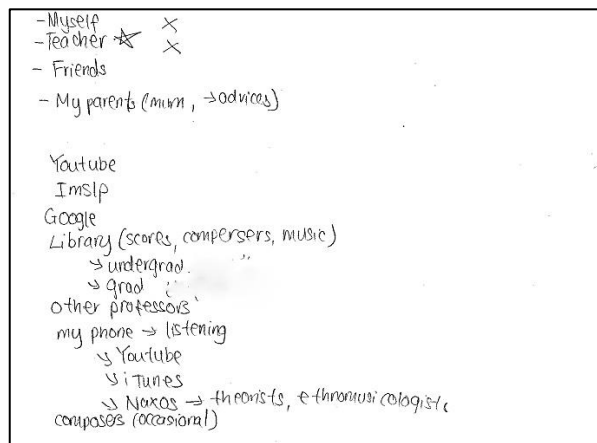 - Myself X
- Teacher ☆ X
- Friends
- My parents (mum, → advices)
Youtube
Imslp
Google
Library (scores, compersers, music)
↘ undergrad. "
↘ grad
other professors
my phone → listening
↘ Youtube
↘ iTunes
↘ Naxos → theorists, ethnomusicologists
composers (occasional)